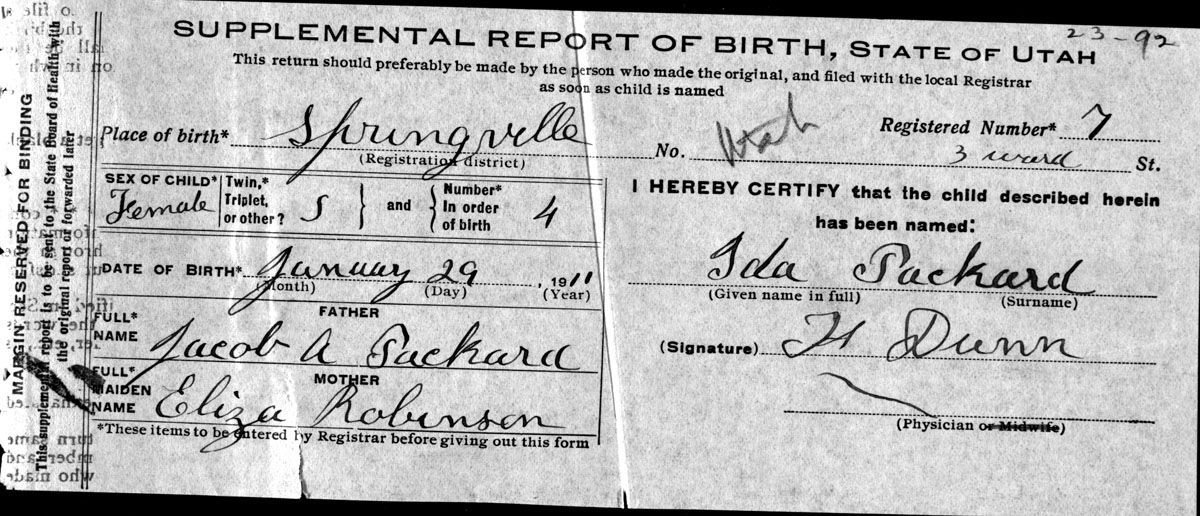 23-92
SUPPLEMENTAL REPORT OF BIRTH, STATE OF UTAH
This return should preferably be made by the person who made the original, and filed with the local Registrar
as soon as child is named
Place of birth* Springville
(Registration district)
No. Utah
Registered Number* 7
3 ward St.
SEX OF CHILD* Female
Twin,* Triplet, or other? S } and { Number* In order of birth 4
DATE OF BIRTH* January 29, 1911
(Month) (Day) (Year)
FATHER
FULL* NAME Jacob A Packard
MOTHER
FULL* MAIDEN NAME Eliza Robinson
*These items to be entered by Registrar before giving out this form
I HEREBY CERTIFY that the child described herein
has been named:
Ida Packard
(Given name in full) (Surname)
(Signature) H Dunn
(Physician or Midwife)
MARGIN RESERVED FOR BINDING
This supplemental report is to be sent to the State Board of Health with
the original report or forwarded later